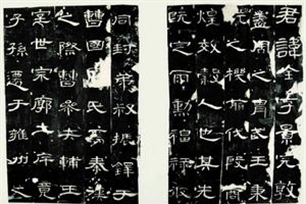 君諱全字景完敦
蓋周之胄武王
之機翦伐殷商
煌效穀人也其先
既定爾勳福祿攸
同封弟叔振鐸于
曹國氏焉秦漢
之際曹參夾輔王
室世宗廓土斥竟
子孫遷于雍州之